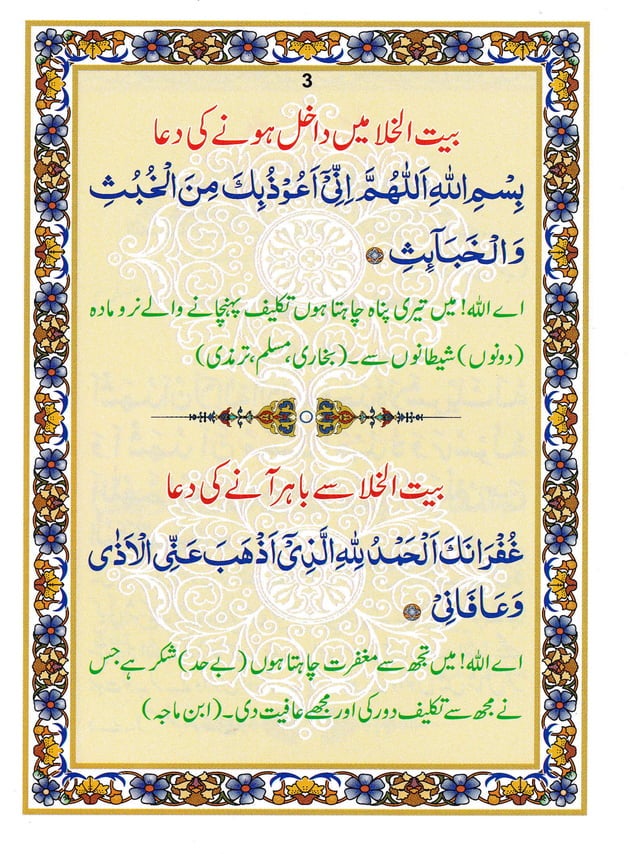 3
بیت الخلا میں داخل ہونے کی دعا
بِسْمِ اللهِ اَللّٰهُمَّ اِنِّیْٓ اَعُوْذُ بِكَ مِنَ الْخُبُثِ
وَالْخَبَآئِثِ
اے اللہ! میں تیری پناہ چاہتا ہوں تکلیف پہنچانے والے نر و مادہ
(دونوں) شیطانوں سے۔ (بخاری، مسلم، ترمذی)
بیت الخلا سے باہر آنے کی دعا
غُفْرَانَكَ اَلْحَمْدُ لِلّٰهِ الَّذِیْٓ اَذْهَبَ عَنِّی الْاَذٰی
وَعَافَانِیْ
اے اللہ! میں تجھ سے مغفرت چاہتا ہوں (بے حد) شکر ہے جس
نے مجھ سے تکلیف دور کی اور مجھے عافیت دی۔ (ابن ماجہ)